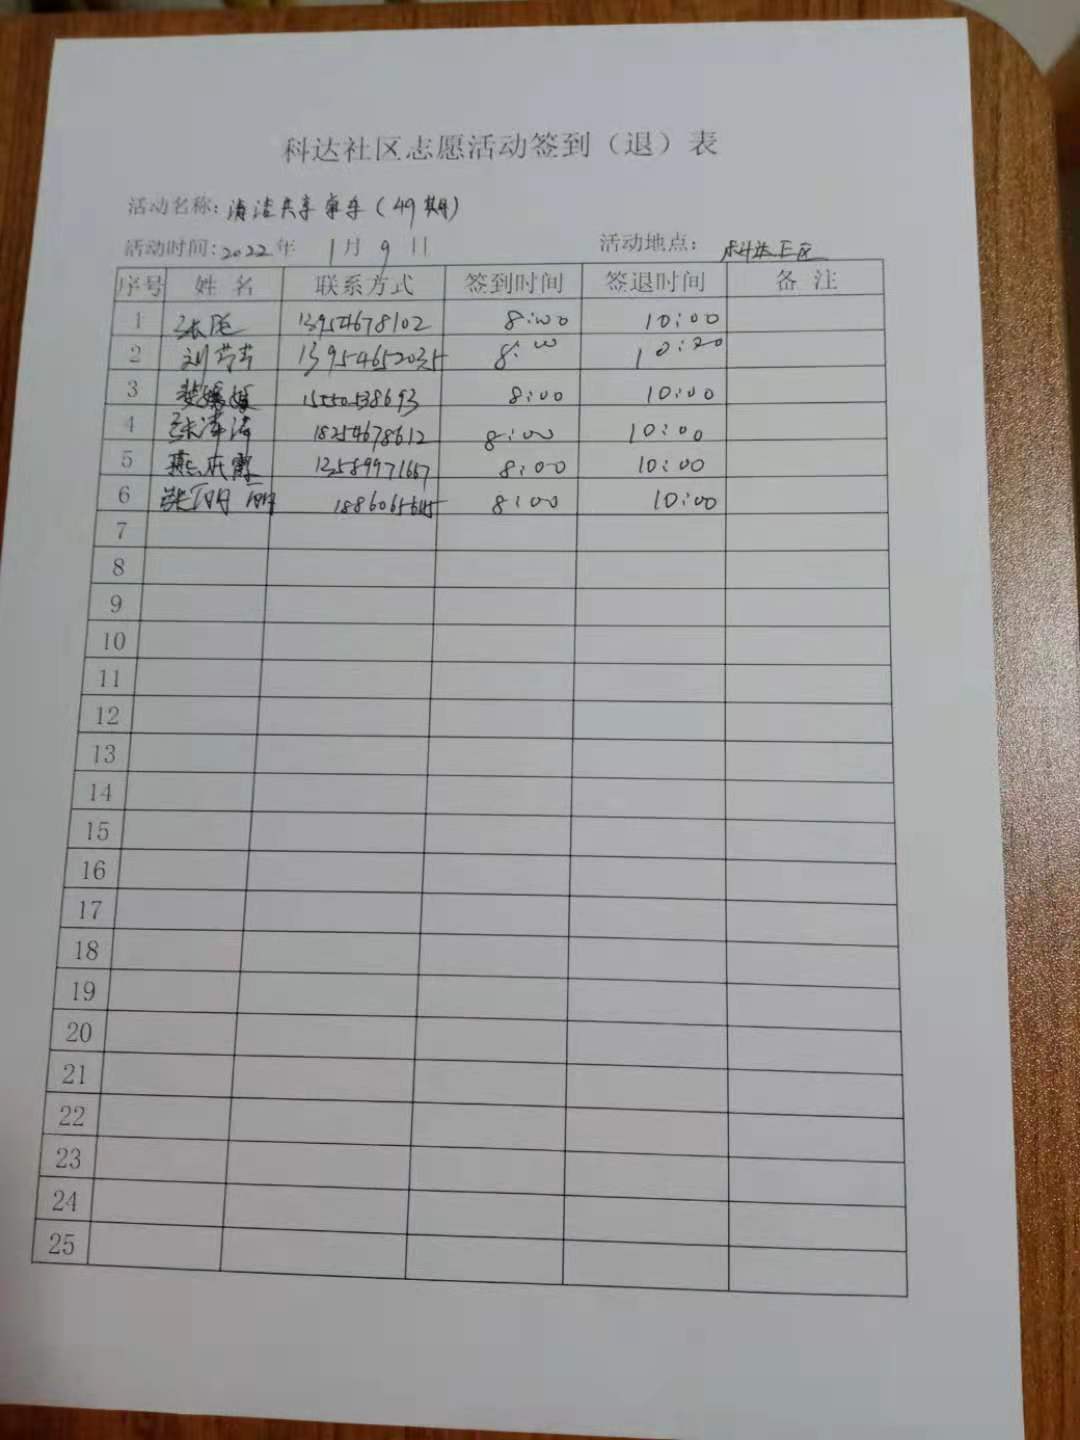 科达社区志愿活动签到（退）表
活动名称：清洁共享单车（49期）
活动时间：2022年 1月 9日 活动地点：科达社区
序号 姓 名 联系方式 签到时间 签退时间 备 注
1 13954678102 8:00 10:00
2 刘芳芳 13954652035 8:00 10:20
3 15550538693 8:00 10:00
4 张涛涛 18254678612 8:00 10:00
5 8:00 10:00
6 8:00 10:00
7
8
9
10
11
12
13
14
15
16
17
18
19
20
21
22
23
24
25